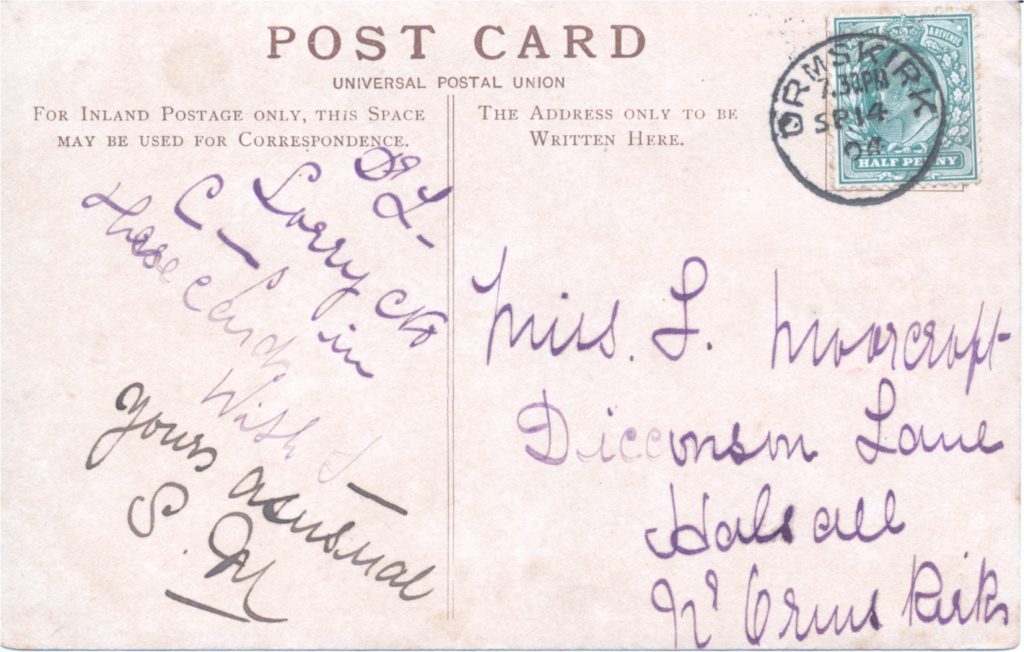 POST CARD
UNIVERSAL POSTAL UNION
FOR INLAND POSTAGE ONLY, THIS SPACE
MAY BE USED FOR CORRESPONDENCE.
THE ADDRESS ONLY TO BE
WRITTEN HERE.
ORMSKIRK
7.30PM
SP 14
04
& REVENUE
HALF PENNY
Dr L-
Sorry
C - in
these cards
With L -
yours as usual
S. M
Miss. L. Moorcroft
Dicconson Lane
Halsall
Nr Ormskirk